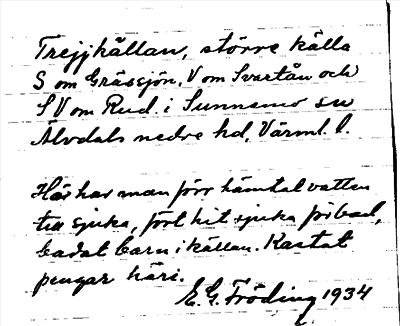 Trejjkällan, större källa
S om Grässjön, V om Svartån och
SV om Rud. i Sunnemo sn
Älvdals nedre hd, Värml. l.
Här har man förr hämtat vatten
till sjuka, fört hit sjuka för bad,
badat barn i källan. Kastat
pengar häri.
E. G. Fröding 1934